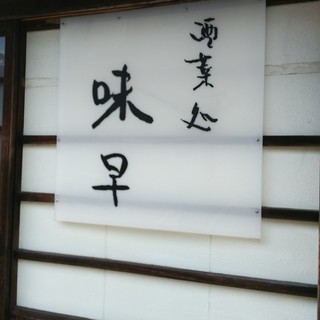 酒菜処
味早